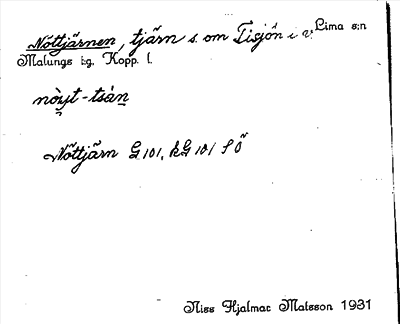 Nöttjärnen, tjärn s. om Tisjön i v Lima s:n
Malungs tg. Kopp. l.
nòyt-tsán
Nöttjärn G 101, kG 101 S Ö
Niss Hjalmar Matsson 1931